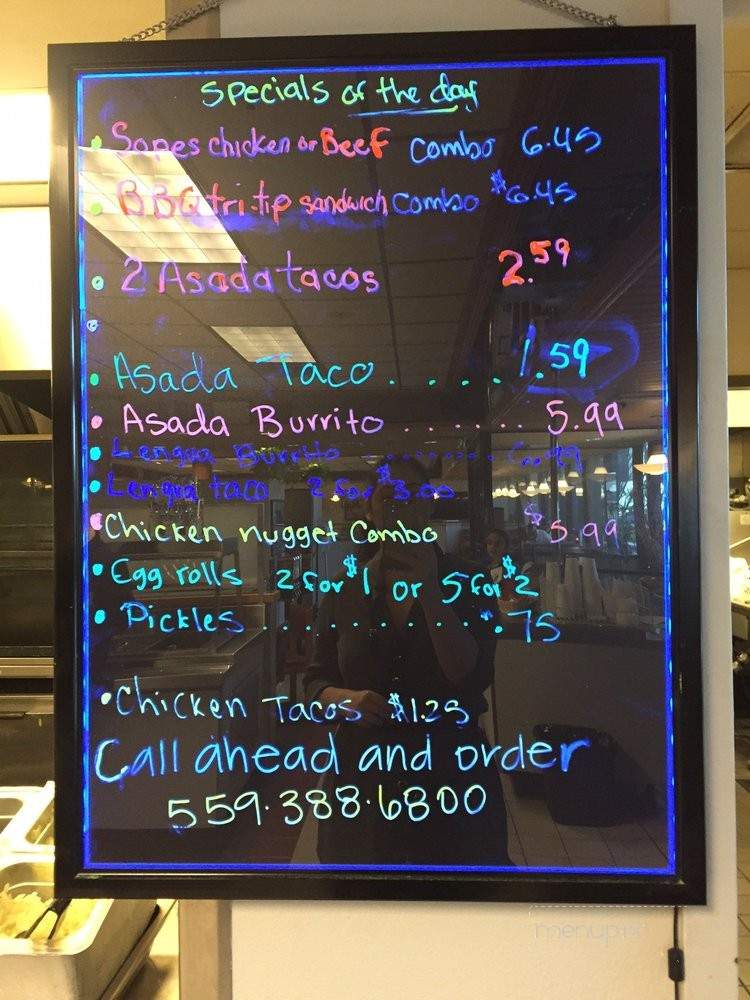 Specials of the day
• Sopes chicken or Beef combo 6.45
• BBQ tri.tip sandwich combo $6.45
• 2 Asada tacos 2.59
• Asada Taco . . . . . 1.59
• Asada Burrito . . . . . . 5.99
• Lengua Burrito
• Lengua taco 2 for $3.00
• Chicken nugget Combo $5.99
• Egg rolls 2 for $1 or 5 for $2
• Pickles . . . . . . . . . . . .75
• Chicken Tacos $1.25
Call ahead and order
559.388.6800